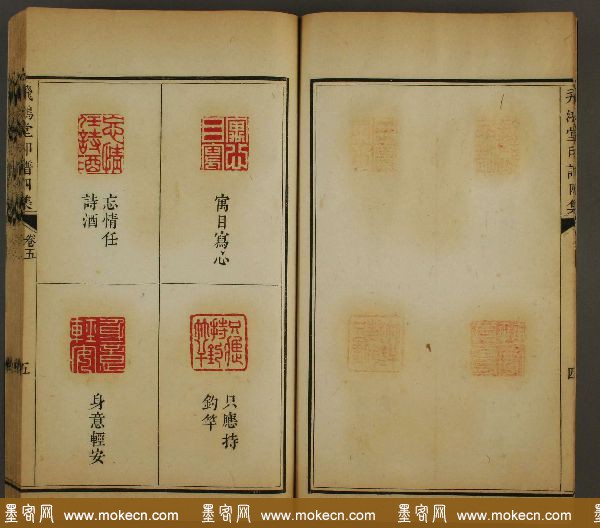 飛鴻堂印譜四集
四
寓目寫心
忘情任
詩酒
只應持
釣竿
身意輕安
飛鴻堂印譜四集
卷五
五
墨客网 www.mokecn.com 墨客网 www.mokecn.com 墨客网 www.mokecn.com